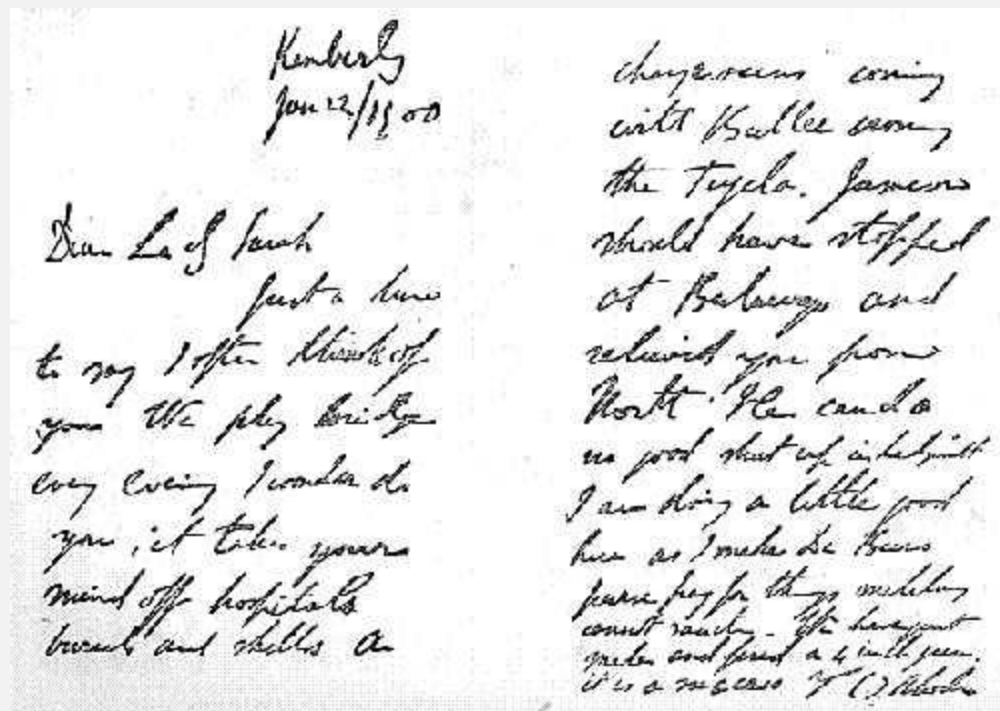 Kimberly
Jan 12/1900
Dear Lady Sarah
Just a line
to say I often think of
you We play bridge
every evening I wonder do
you, it takes your
mind off hospitals
burials and shells A
change seems coming
with Buller crossing
the Tugela. Jameson
should have stopped
at Bulawayo and
relieved you from
North He can do
no good shut up in Ladysmith
I am doing a little good
here as I make De Beers
purse pay for things military
cannot sanction. We have just
made and fired a 4 inch gun,
it is a success Yrs CJ Rhodes